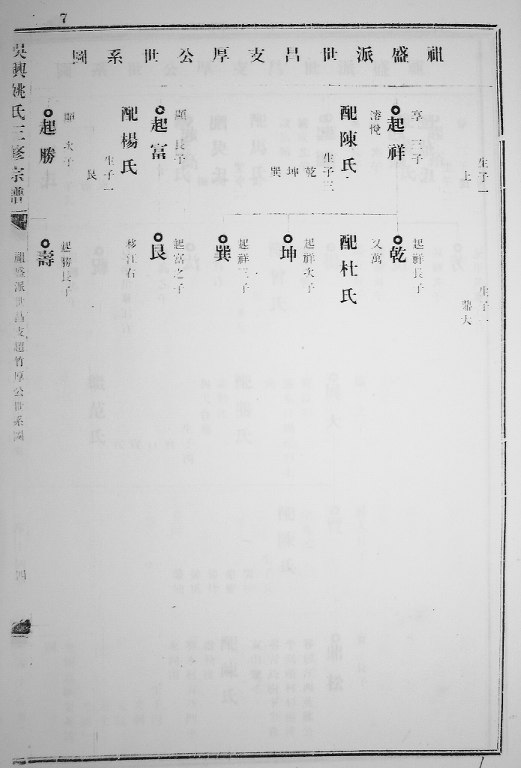 7
祖盛派世昌支厚公世系圖
生子一
上
享 三子
起祥
濬悅
配陳氏
生子三
乾
坤
巽
顯 長子
起富
配楊氏
生子一
艮
顯 次子
起勝
生子一
起祥長子
乾
又萬
配杜氏
起祥次子
坤
起祥三子
巽
起富之子
艮
移江右
起勝長子
壽
吳興姚氏三修宗譜
祖盛派世昌支超竹厚公世系圖
四